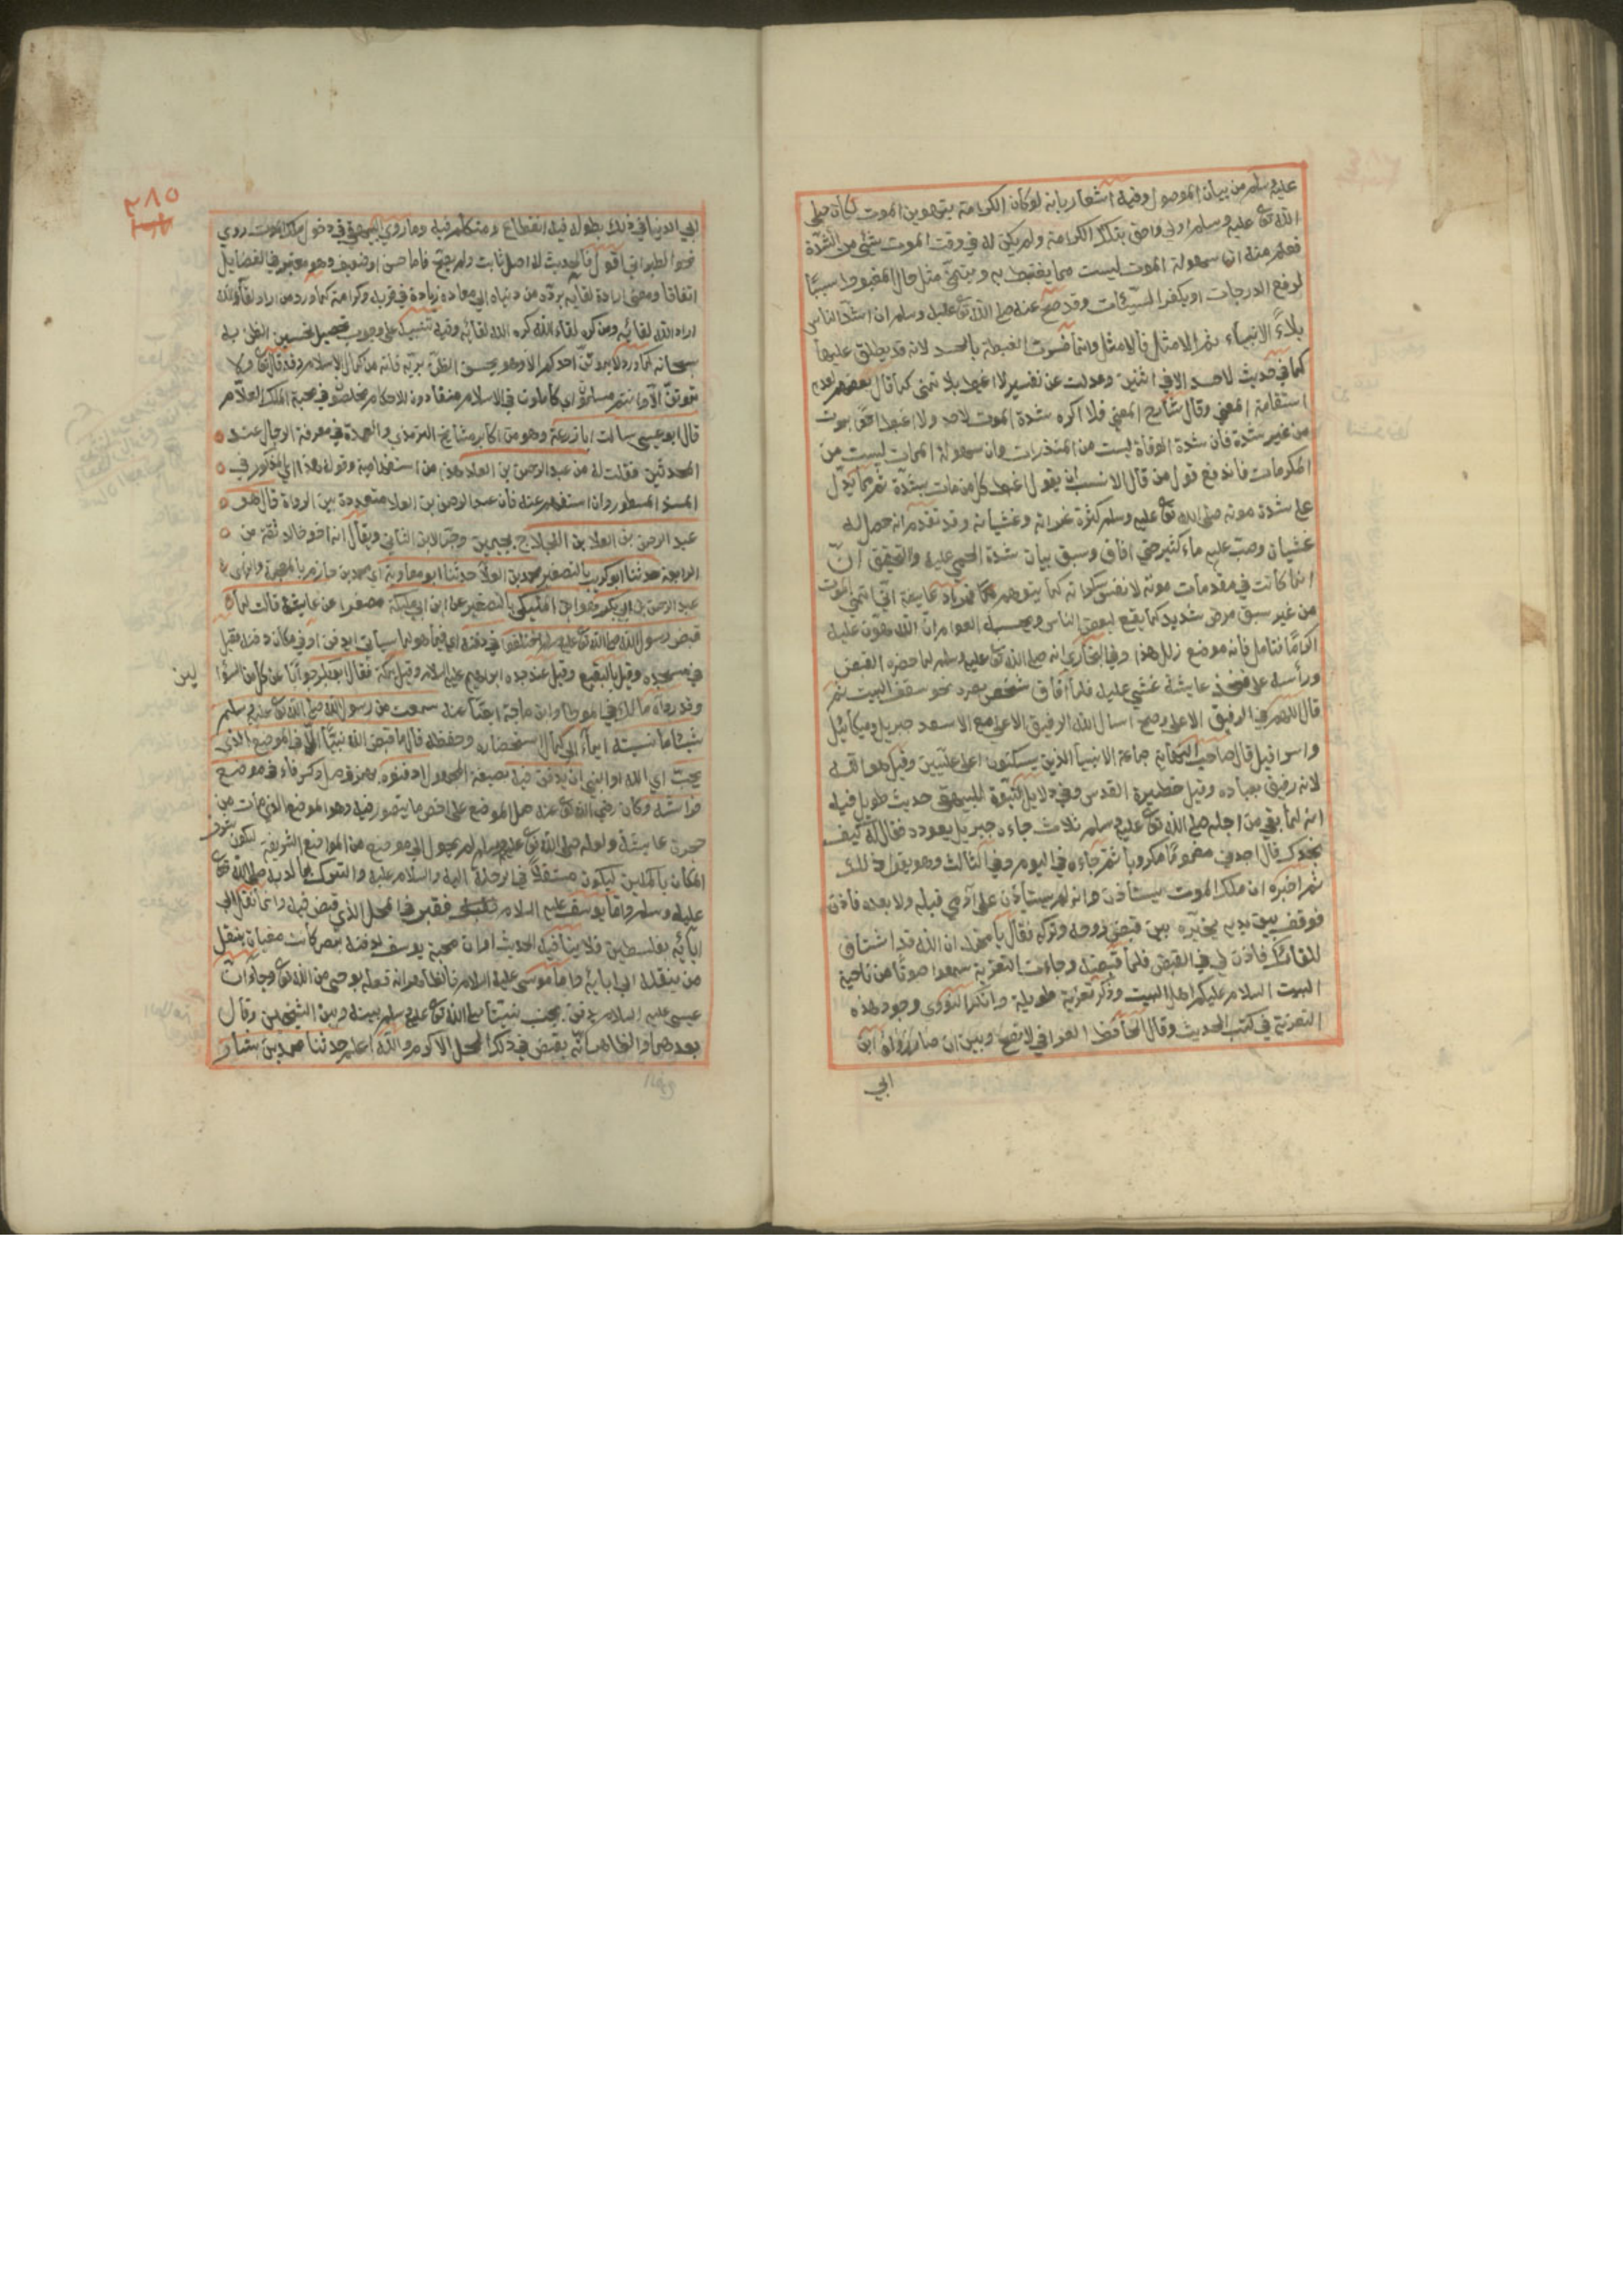 عليه وسلم من بيان الموصول وفيه اشعار بانه لو كان الكرامة بتهوين الموت لكان صلى
الله تع عليه وسلم اولى واحق بتلك الكرامة ولم يكن له في وقت الموت شئ من الشدة
فعلم منه ان سهولة الموت ليست مما يغتبط به ويتمنى مثل حال المغبوط سيما
لرفع الدرجات او يكفر السيئات وقد صح عنه صلى الله تع عليه وسلم ان اشد الناس
بلاءً الانبياء ثم الامثل فالامثل وانما فسرت الغبطة بالحسد لانه قد يطلق عليها
كما في حديث لا حسد الا في اثنين وعدلت عن تفسير لا اغبط بلا تمنى كما قال بعضهم لعدم
استقامة المعنى وقال شارح المعنى فلا اكره شدة الموت لاحد ولا اغبط احدا يموت
من غير شدة فان شدة الوفاة ليست من المنذرات وان سهولة الممات ليست من
المكرمات فاندفع قول من قال الانسب ان يقول اغبط كل من مات بشدة ثم مما يدل
على شدة موته صلى الله تع عليه وسلم كثرة غمراته وغشيانه وقد تقدم انه حصل له
غشيان وصب عليه ماء كثير حتى افاق وسبق بيان شدة الحمى عليه والتحقيق انّ
انما كانت في مقدمات موته لا نفس سكراته كما يتوهم فمراد عايشة اني اتمنى الموت
من غير سبق مرض شديد كما يقع لبعض الناس ويحسبه العوام ان الله هون عليه
اكرامًا فتامل فانه موضع زلل هذا وفي البخاري انه صلى الله تع عليه وسلم لما حضره القبض
ورأسه على فخذ عايشة غشي عليه فلما افاق شخص بصره نحو سقف البيت ثم
قال اللهم في الرفيق الاعلى وصح اسال الله الرفيق الاعلى مع الاسعد جبريل وميكائيل
واسرافيل قال صاحب النهاية جماعة الانبيا الذين يسكنون اعلى عليين وقيل هو الله
لانه رفيق بعباده وقيل حظيرة القدس وفي دلايل النبوة للبيهقي حديث طويل فيه
انه لما بقي من اجله صلى الله تع عليه وسلم ثلاث جاءه جبريل يعوده فقال له كيف
تجدك قال اجدني مغمومًا مكروبا ثم جاءه في اليوم وفي الثالث وهو يقول ذلك
ثم اخبره ان ملك الموت يستاذن وانه لم يستأذن على آدمي قبله ولا بعده فاذن
فوقف بين يديه يخيره بين قبض روحه وتركه فقال يا محمد ان الله قد اشتاق
للقائك فاذن لي في القبض فلما قبضه وجاءت التعزية سمعوا صوتًا من ناحية
البيت السلام عليكم اهل البيت وذكر تعزية طويلة وانكر النووي وجود هذه
التعزية في كتب الحديث وقال الحافظ العراقي لا يصح وبين ان صار رواه ابن
ابي
٢٨٥
ابي الدنيا في ذلك بطوله فيه انقطاع ومتكلم فيه وما روي البيهقي في دخول ملك الموت روى
نحوه الطبراني اقول فالحديث له اصل ثابت ولم يصح فاما حسن او ضعيف وهو معتبر في الفضايل
اتفاقا ومعنى ارادة لقايه برده من دنياه الى معاده زيادة في قربه وكرامة كما ورد من اراد لقاء الله
اراد الله لقائه ومن كره لقاء الله كره الله لقائه وفيه تنبيه على وجوب تحصيل تحسين الظن به
سبحانه كما ورد لا يموتن احدكم الا وهو يحسن الظن بربه فانه من كمال الاسلام وقد قال تع ولا
تموتن الا وانتم مسلمون اي كاملون في الاسلام منقادون للاحكام مخلصون في محبة الملك العلام
قال ابو عيسى سالت ابا زرعة وهو من اكابر مشايخ الترمذي والعمدة في معرفة الرجال عند
المحدثين فقلت له من عبد الرحمن بن العلاء هذا من استفهامية وقوله هذا اي المذكور في
المسند المسطور وان استفهم عنه فان عبد الرحمن بن العلاء متعددة بين الرواة قال هو
عبد الرحمن بن العلا بن اللجلاج بجيمين وجر الابن الثاني ويقال انه اخو خالد ثقة من
الرابعة حدثنا ابو كريب بالتصغير محمد بن العلا حدثنا ابو معاوية اي محمد بن خازم بالمعجمة والزاي
عبد الرحمن بن ابي بكر هو ابن المليكي بالتصغير عن ابن ابي مليكة مصغرا عن عايشة قالت لما
قبض رسول الله صلى الله تع عليه وسلم اختلفوا في دفنه اي فيما هو لما سياتي ايدفن او في مكان دفنه فقيل
في مسجده وقيل بالبقيع وقيل عند جده ابراهيم عليه السلام وقيل بمكة فقال ابو بكر جوابا عن كل من السؤا
لين
وقد رواه مالك في الموطا وابن ماجة ايضًا عنه سمعت من رسول الله صلى الله تع عليه وسلم
شيئا ما نسيته ايماء الى كمال استحضاره وحفظه قال ما قبض الله نبيًا الا في الموضع الذي
يحب اي الله او النبي ان يدفن فيه بصيغة المجهول ادفنوه بهمز وصل وكسر فاء في موضع
فراشه وكان رضي الله تع عنه حمل الموضع على اخص ما يتصور فيه وهو الموضع الذي مات من
حجرة عايشة ولعله صلى الله تع عليه وسلم لم يحول الى موضع من المواضع الشريفة ليكون شرف
المكان بالمكين ليكون مستقلاً في الرحلة اليه والسلام عليه والتبرك بما لديه صلى الله تع
عليه وسلم واما يوسف عليه السلام فقبر في المحل الذي قبض فيه وانما نقل الى
آبائه بفلسطين فلا ينافيه الحديث او ان محبة يوسف لدفنه بمصر كانت مغياة بنقل
من ينقله الى ابائه واما موسى عليه السلام فالظاهر انه فعله بوحي من الله تع وجاء ان
عيسى عليه السلام يدفن بجنب نبينا صلى الله تع عليه وسلم بينه وبين الشيخين وقال
بعدهما والظاهر انه يقبض في ذلك المحل الاكرم والله اعلم حدثنا محمد بن بشار